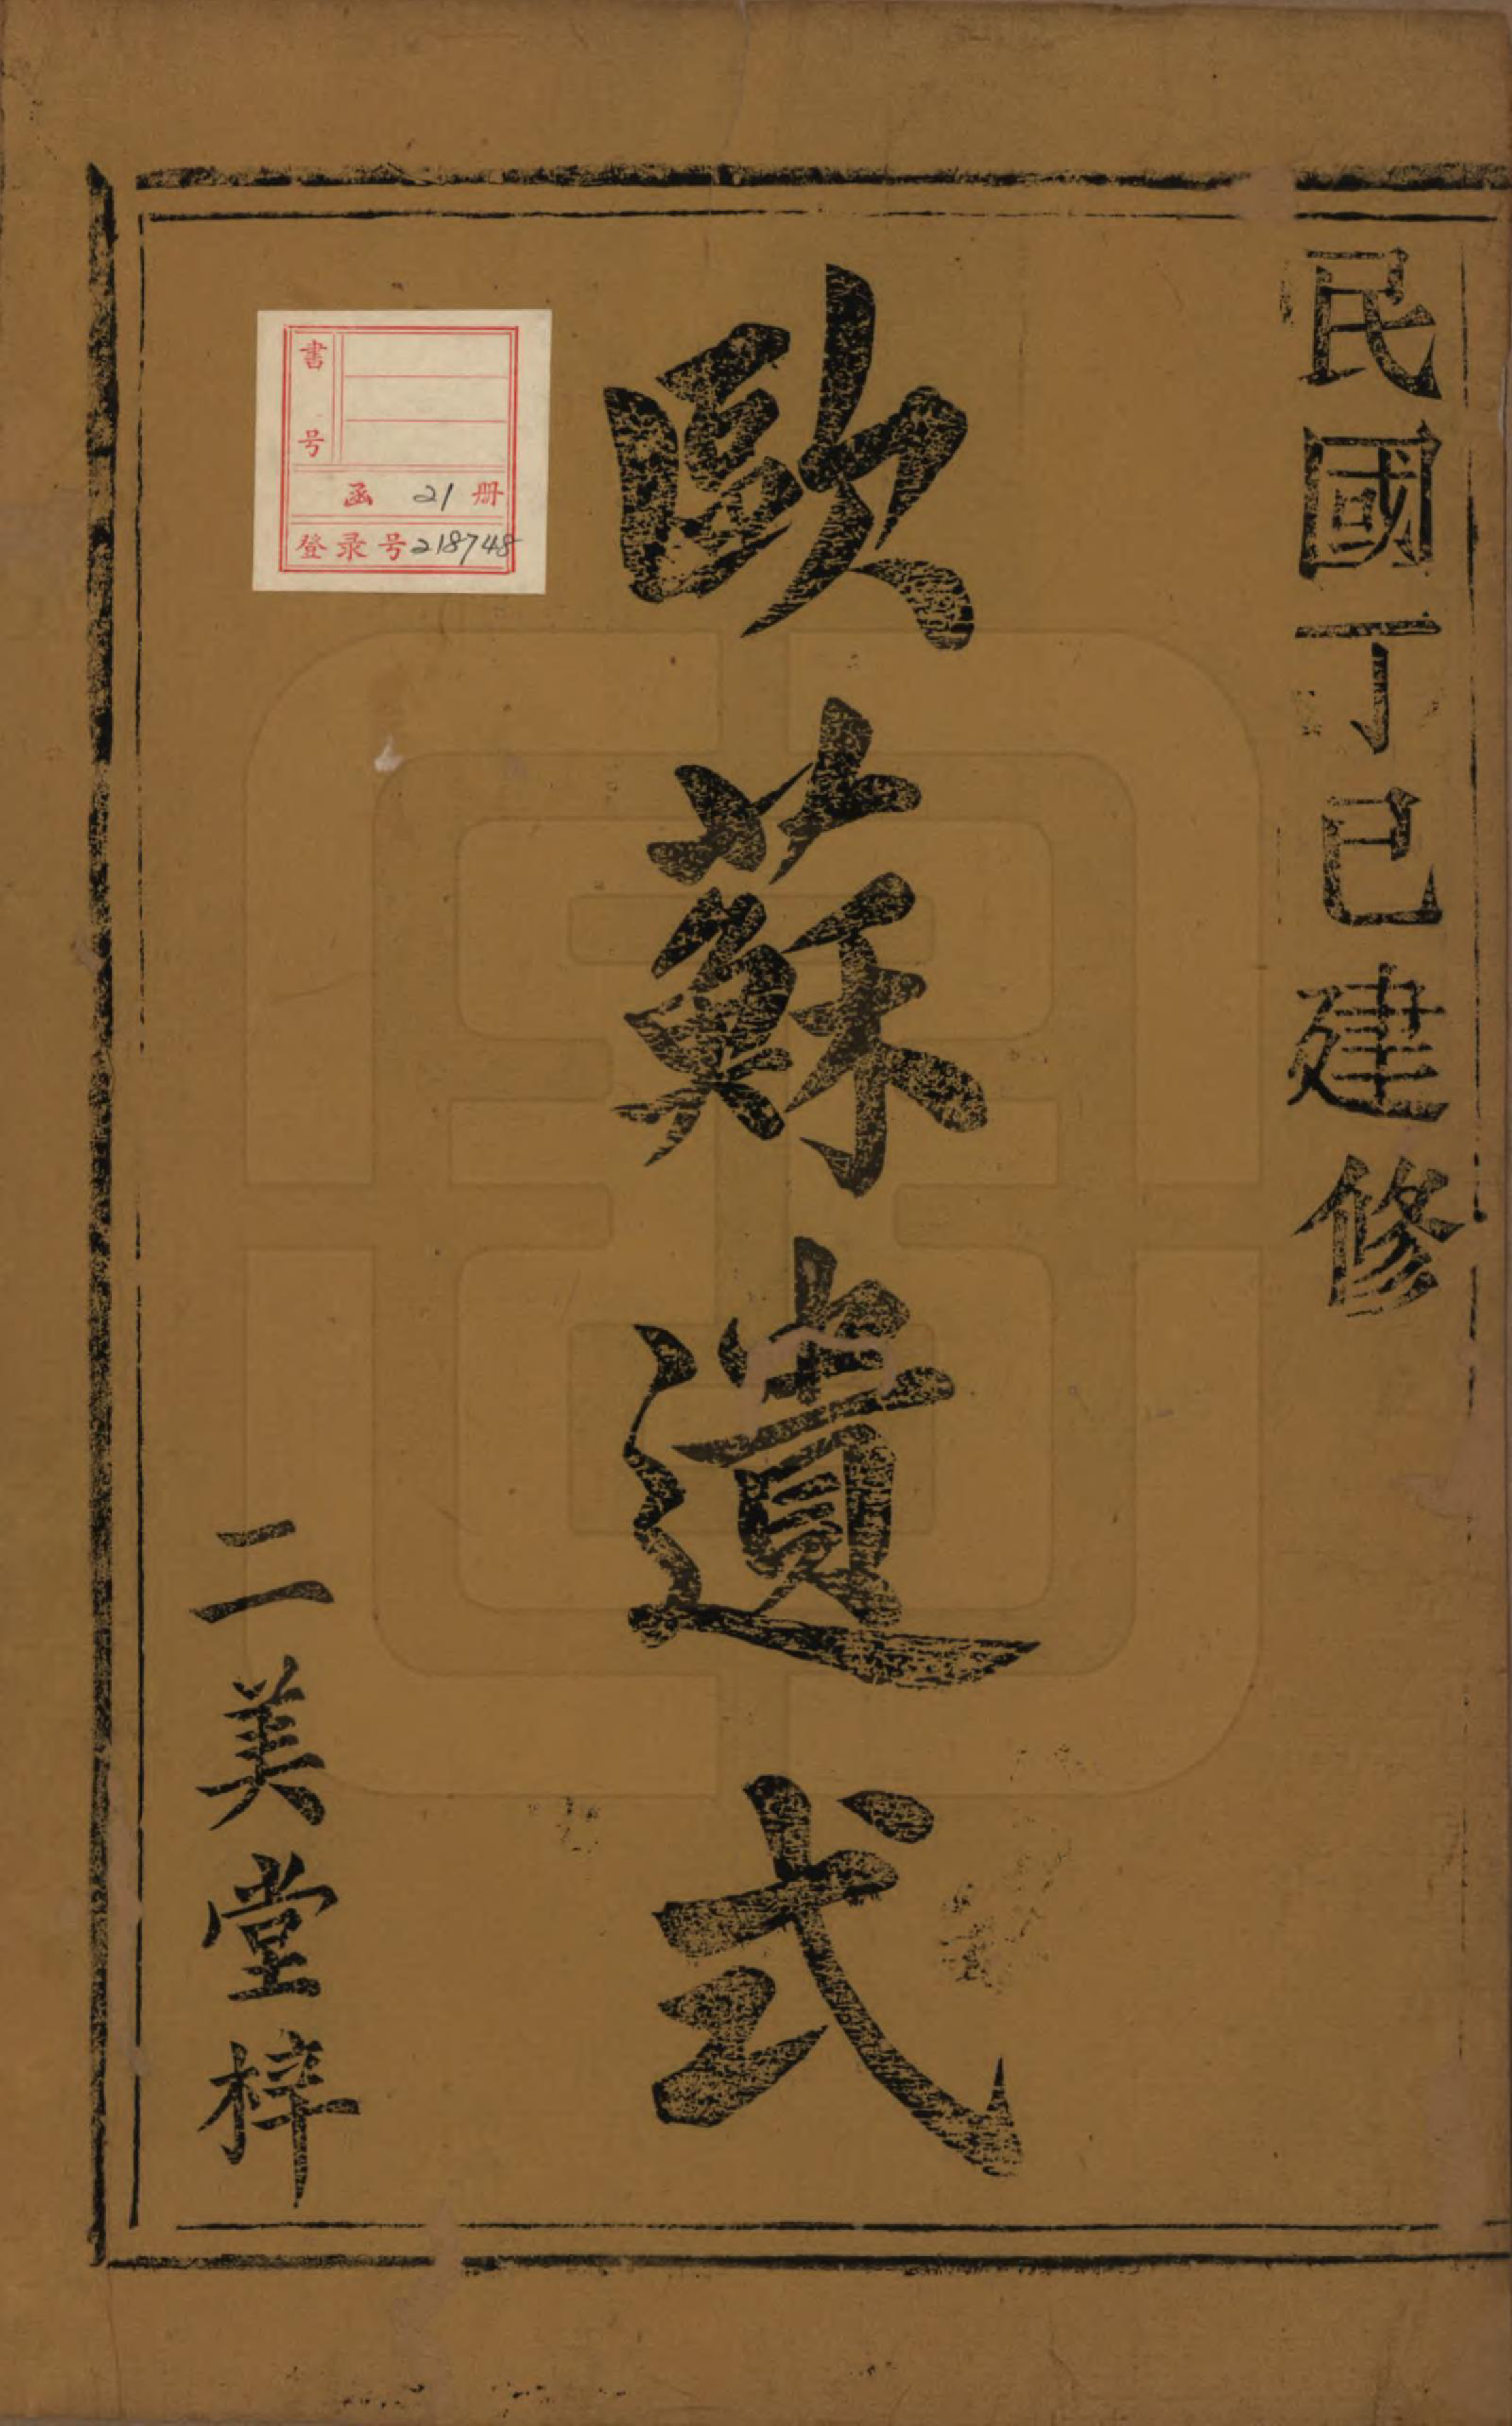 民國丁巳建修
歐蘇遺式
二美堂梓
書号
函 21 册
登录号218748